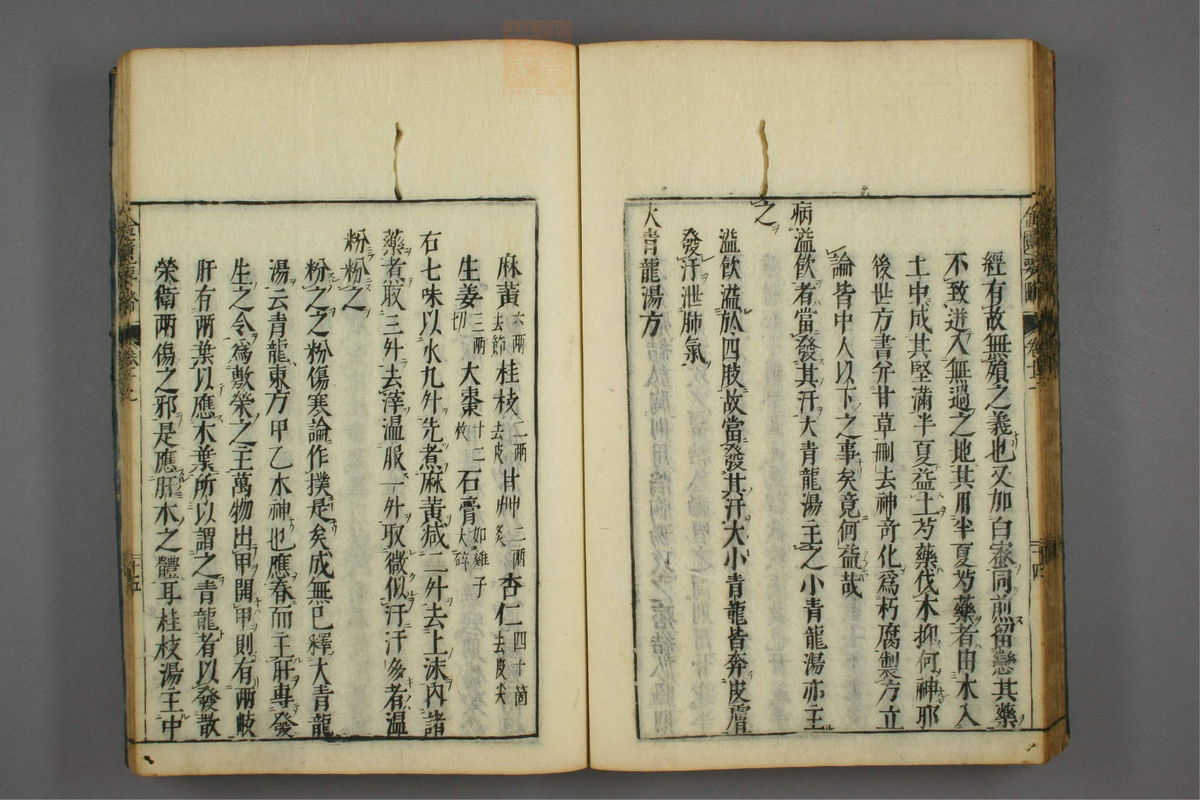 經有故無殞之義也又加白蜜同煎留戀其藥
不致迸入無過之地其用半夏芍藥者由木入
土中成其堅滿半夏益土芍藥伐木抑何神耶
後世方書并甘草刪去神奇化爲朽腐製方立
論皆中人以下之事矣竟何益哉
病溢飲者當發其汗大青龍湯主之小青龍湯亦主
之
溢飲溢於四肢故當發其汗大小青龍皆奔皮膚
發汗泄肺氣
大青龍湯方
麻黃六兩去節 桂枝二兩去皮 甘艸二兩炙 杏仁四十箇去皮尖
生姜三兩切 大棗十二枚 石膏如雞子大碎
右七味以水九升先煮麻黃减二升去上沫內諸
藥煮取三升去滓温服一升取微似汗汗多者温
粉粉之
粉之之粉傷寒論作撲是矣成無已釋大青龍
湯云青龍東方甲乙木神也應春而主肝專發
生之令爲敷榮之主萬物出甲開甲則有兩岐
肝有兩葉以應木葉所以謂之青龍者以發散
榮衛兩傷之邪是應肝木之體耳桂枝湯主中